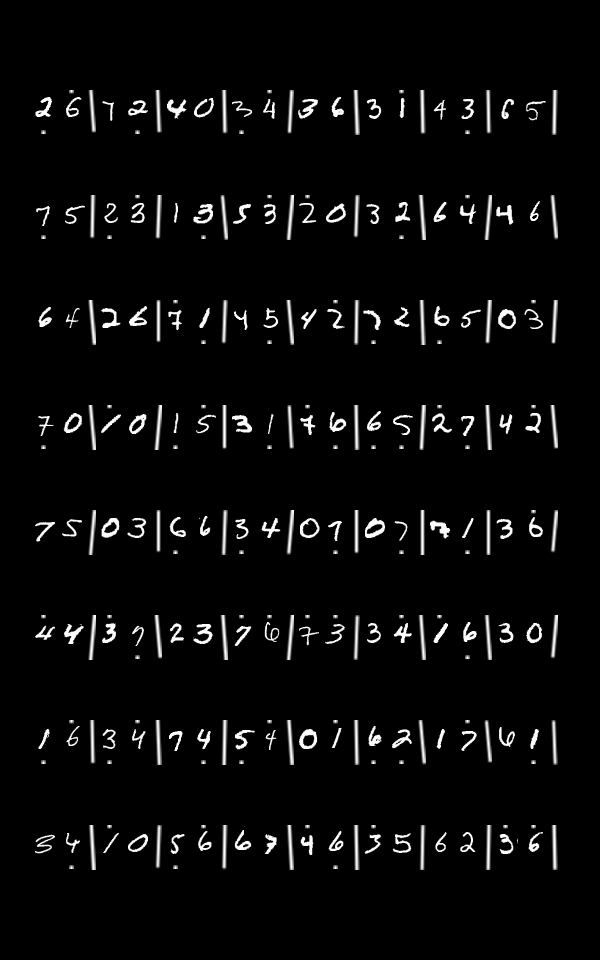 2 6 | 7 2 | 4 0 | 3 4 | 3 6 | 3 1 | 4 3 | 6 5 |
7 5 | 2 3 | 1 3 | 5 3 | 2 0 | 3 2 | 6 4 | 4 6 |
6 4 | 2 6 | 7 1 | 4 5 | 4 2 | 7 2 | 6 5 | 0 3 |
7 0 | 1 0 | 1 5 | 3 1 | 7 6 | 6 5 | 2 7 | 4 2 |
7 5 | 0 3 | 6 6 | 3 4 | 0 7 | 0 7 | 7 1 | 3 6 |
4 4 | 3 7 | 2 3 | 7 6 | 7 3 | 3 4 | 1 6 | 3 0 |
1 6 | 3 4 | 7 4 | 5 4 | 0 1 | 6 2 | 1 7 | 6 1 |
3 4 | 1 0 | 5 6 | 6 7 | 4 6 | 3 5 | 6 2 | 3 6 |